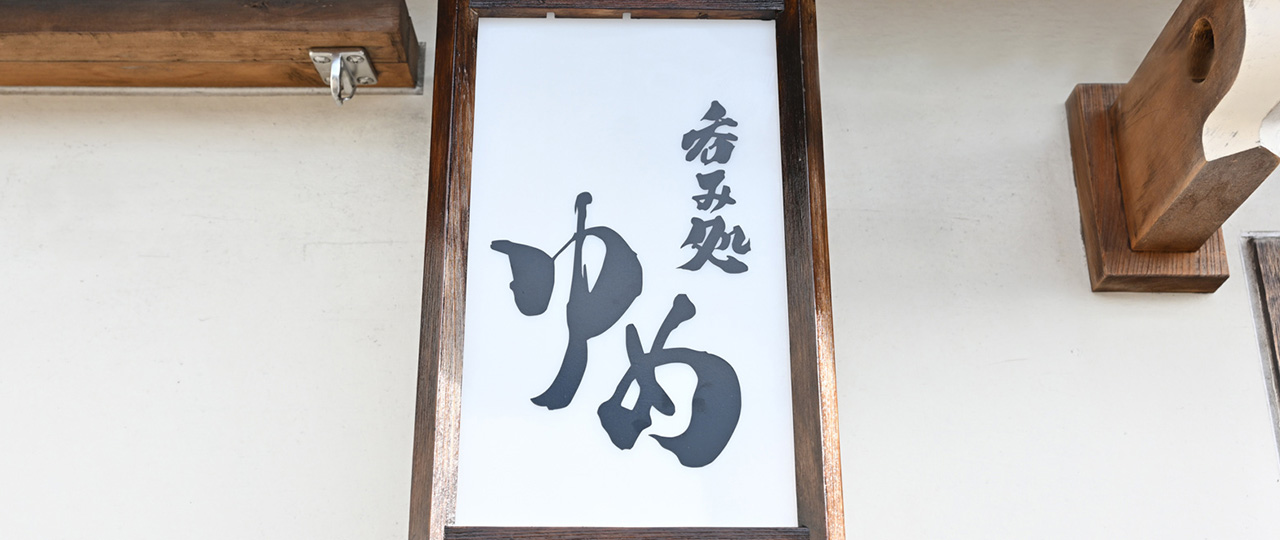 呑み処
ゆめ